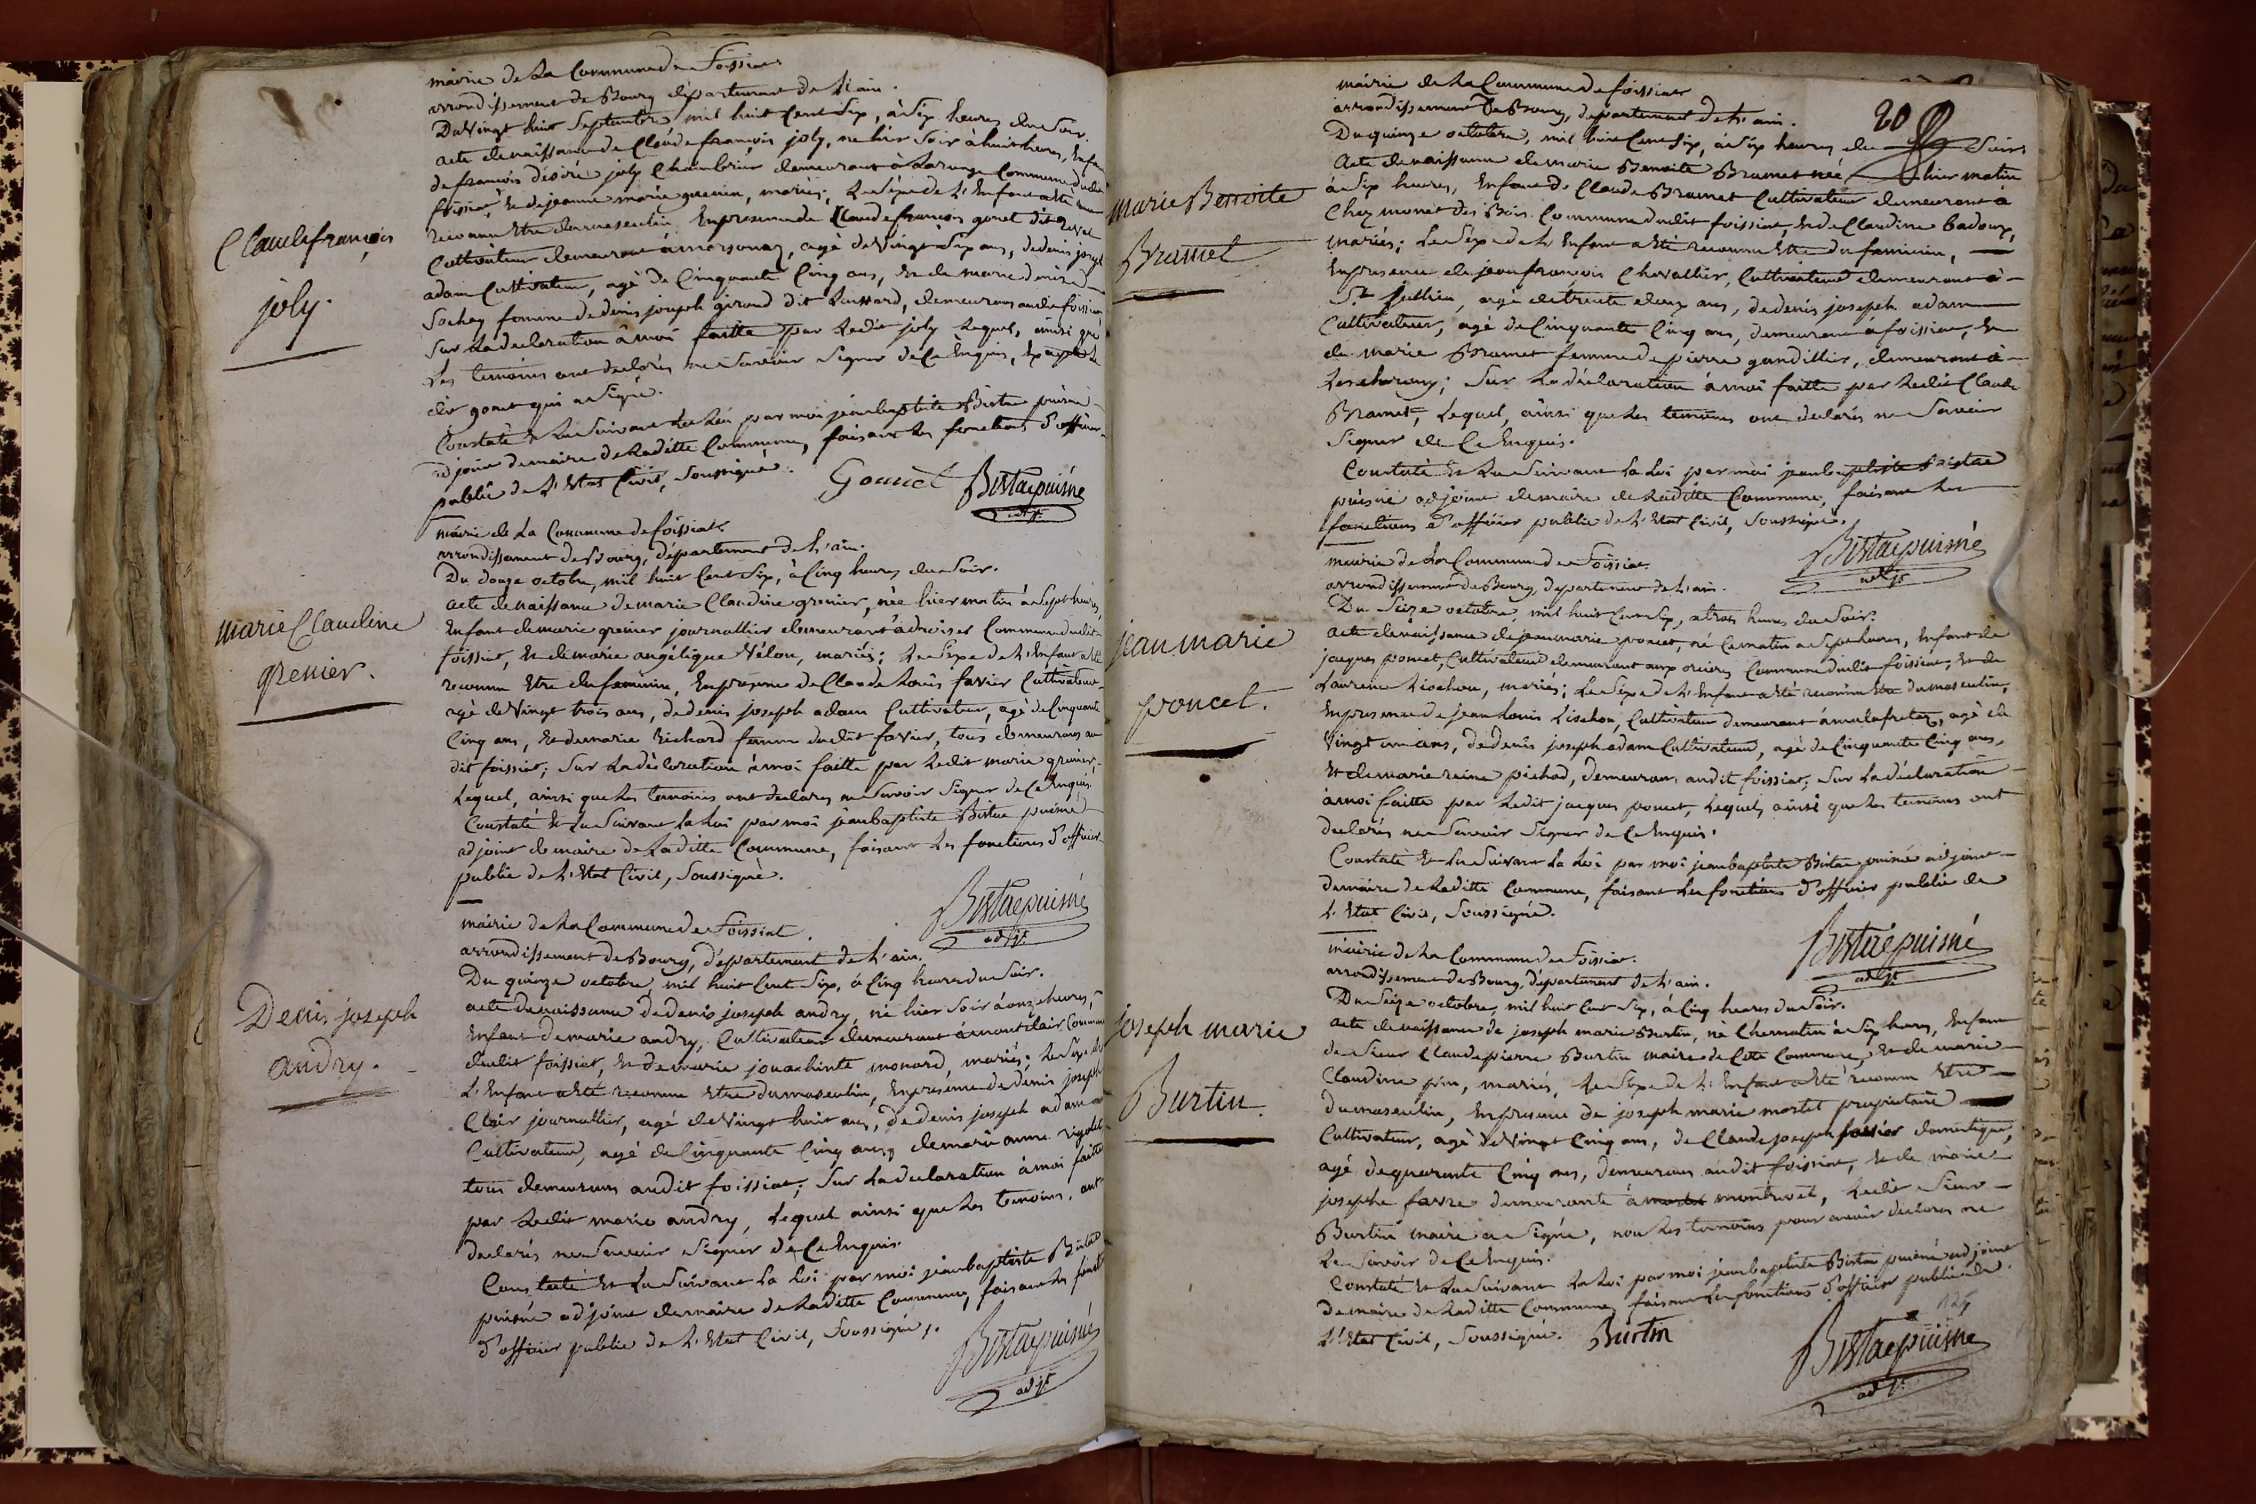 mairie de La Commune de Foissiat
arrondissement de Bourg département de L'ain.
Du Vingt huit Septembre mil huit Cent Six, à Six heures du Soir.
acte de naissance de Claude françois joly, né hier Soir à huit heures, Enfant
de françois désiré joly Chambrier demeurant à Commune dudit
foissiat, Et de jeanne marie guenin, mariés; Le Sexe de L'Enfant a été
reconnu Etre du masculin. En présence de Claude françois gonet dit
Cultivateur demeurant à marsonnaz, agé de Vingt Six ans, de denis joseph
adam Cultivateur, agé de Cinquante Cinq ans, Et de marie denise
Sochay femme de denis joseph giroud dit Lussard, demeurans audit foissiat
Sur La declaration à moi faitte par Ledit joly Lequel, ainsi que
Les temoins ont declarés ne Savoir Signer de Ce Enquis, Excepté Le
dit gonet qui a Signé.
Constaté Et Lu Suivant La Loi par moi jean baptiste Bistac puisné
adjoint de maire de Laditte Commune, faisant Les fonctions d'officier
public de L'Etat Civil, Soussigné. Gonnet Bistacpuisné
adjt
Claude françois
joly.
mairie de La Commune de foissiat.
arrondissement de Bourg, département de L'ain.
Du douze octobre, mil huit Cent Six, à Cinq heures du Soir.
acte de naissance de marie Claudine grenier, née hier matin à Sept heures,
Enfant de marie grenier journallier demeurant à Commune dudit
foissiat, Et de marie angélique Vélon, mariés; Le Sexe de L'Enfant a été
reconnu Etre du féminin, En présence de Claude Louis favier Cultivateur
agé de Vingt trois ans, de denis joseph adam Cultivateur, agé de Cinquante
Cinq ans, Et de marie Richard femme dudit favier, tous demeurans au
dit foissiat; Sur La déclaration à moi faitte par Ledit marie grenier,
Lequel, ainsi que Les temoins ont declarés ne Savoir Signer de Ce Enquis.
Constaté Et Lu Suivant La Loi par moi jean baptiste Bistac puisné
adjoint de maire de Laditte Commune, faisant Les fonctions d'officier
public de L'Etat Civil, Soussigné.
Bistacpuisné
adjt
marie Claudine
grenier.
mairie de La Commune de Foissiat.
arrondissement de Bourg, département de L'ain.
Du quinze octobre, mil huit Cent Six, à Cinq heures du Soir.
acte de naissance de denis joseph andry, né hier Soir à onze heures,
Enfant de marie andry, Cultivateur demeurant à montclair Commune
dudit foissiat, Et de marie jouachinte monard, mariés; Le Sexe de
L'Enfant a été reconnu Etre du masculin, En présence de denis joseph
Clair journallier, agé de Vingt huit ans, de denis joseph adam
Cultivateur, agé de Cinquante Cinq ans, de marie anne rigolet
tous demeurans audit foissiat; Sur La declaration à moi faitte
par Ledit marie andry, Lequel ainsi que Les temoins, ont
declarés ne Savoir Signer de Ce Enquis.
Constaté Et Lu Suivant La Loi par moi jean baptiste Bistac
puisné adjoint de maire de Laditte Commune, faisant Les fonct
d'officier public de L'Etat Civil, Soussigné.
Bistacpuisné
adjt
Denis joseph
andry.
20
mairie de La Commune de foissiat
arrondissement de Bourg, departement de L'ain.
Du quinze octobre, mil huit Cent Six, à Six heures du Soir
Acte de naissance de marie Benoite Bramet née hier matin
à Six heures, Enfant de Claude Bramet Cultivateur demeurant à
Chez monet des Bois Commune dudit foissiat, Et de Claudine badoux,
mariés; Le Sexe de L'Enfant a été reconnu Etre du féminin,
En présence de jean françois Chevallier, Cultivateur demeurant à
St jullien, agé de trente deux ans, de denis joseph adam
Cultivateur, agé de Cinquante Cinq ans, demeurant à foissiat, Et
de marie Bramet femme de pierre gandillier, demeurant à
Lescheroux; Sur La déclaration à moi faitte par Ledit Claude
Bramet, Lequel, ainsi que Les temoins ont declarés ne Savoir
Signer de Ce Enquis.
Constaté Et Lu Suivant La Loi par moi jean baptiste Bistac
puisné adjoint de maire de Laditte Commune, faisant Les
fonctions d'officier public de L'Etat Civil, Soussigné.
Bistacpuisné
adjt
marie Benoite
Bramet
mairie de La Commune de Foissiat
arrondissement de Bourg, departement de L'ain.
Du Seize octobre, mil huit Cent Six, à trois heures du Soir.
Acte de naissance de jean marie poncet, né Ce matin à Sept heures, Enfant de
jacques poncet, Cultivateur demeurant aux Commune dudit foissiat, Et de
Laurence Liochon, mariés; Le Sexe de L'Enfant a été reconnu Etre du masculin,
En présence de jean Louis Liochon, Cultivateur demeurant à malafretaz, agé de
Vingt un ans, de denis joseph adam Cultivateur, agé de Cinquante Cinq ans,
Et de marie reine pichod, demeurans audit foissiat; Sur La déclaration
à moi faitte par Ledit jacques poncet, Lequel, ainsi que Les temoins ont
declarés ne Savoir Signer de Ce Enquis.
Constaté Et Lu Suivant La Loi par moi jean baptiste Bistac puisné adjoint
de maire de Laditte Commune, faisant Les fonctions d'officier public de
L'Etat Civil, Soussigné.
Bistacpuisné
adjt
jean marie
poncet.
mairie de La Commune de Foissiat.
arrondissement de Bourg, département de L'ain.
Du Seize octobre, mil huit Cent Six, à Cinq heures du Soir.
acte de naissance de joseph marie Burtin, né Ce matin à Six heures, Enfant
de Sieur Claude pierre Burtin maire de Cette Commune, Et de marie
Claudine, mariés, Le Sexe de L'Enfant a été reconnu Etre
du masculin, En présence de joseph marie mortel propriétaire
Cultivateur, agé de Vingt Cinq ans, de Claude joseph domestique,
agé de quarante Cinq ans, demeurans audit foissiat, Et de marie
josephe favre demeurante à montrevel, Ledit Sieur
Burtin maire a Signé, non Les temoins pour avoir declarés ne
Le Savoir de Ce Enquis.
Constaté Et Lu Suivant La Loi par moi jean baptiste Bistac puisné adjoint
de maire de Laditte Commune, faisant Les fonctions d'officier public de
L'Etat Civil, Soussigné. Burtin
Bistacpuisné
adjt
joseph marie
Burtin.